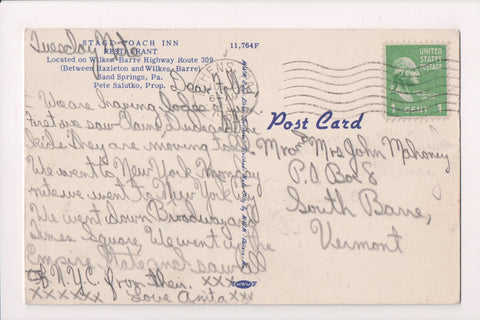 STAGE COACH INN
RESTAURANT
11,764F
Located on Wilkes-Barre Highway Route 309
(Between Hazleton and Wilkes-Barre)
Sand Springs, Pa.
Pete Salutko, Prop.
UNITED
STATES
POSTAGE
1 CENT 1
Post Card
Tuesday Nite
Dear Folks,
We are having loads of
First we saw Claire
kids They are moving
We went to New York Monday
nite we went to New York by
We went down Broadway and
times Square. We went up the
Empire State and saw all
of N.Y.C. from there. xxx
xxxxxx Love Anita xxx
Mr and Mrs John Mahoney
P.O Box 8
South Barre,
Vermont